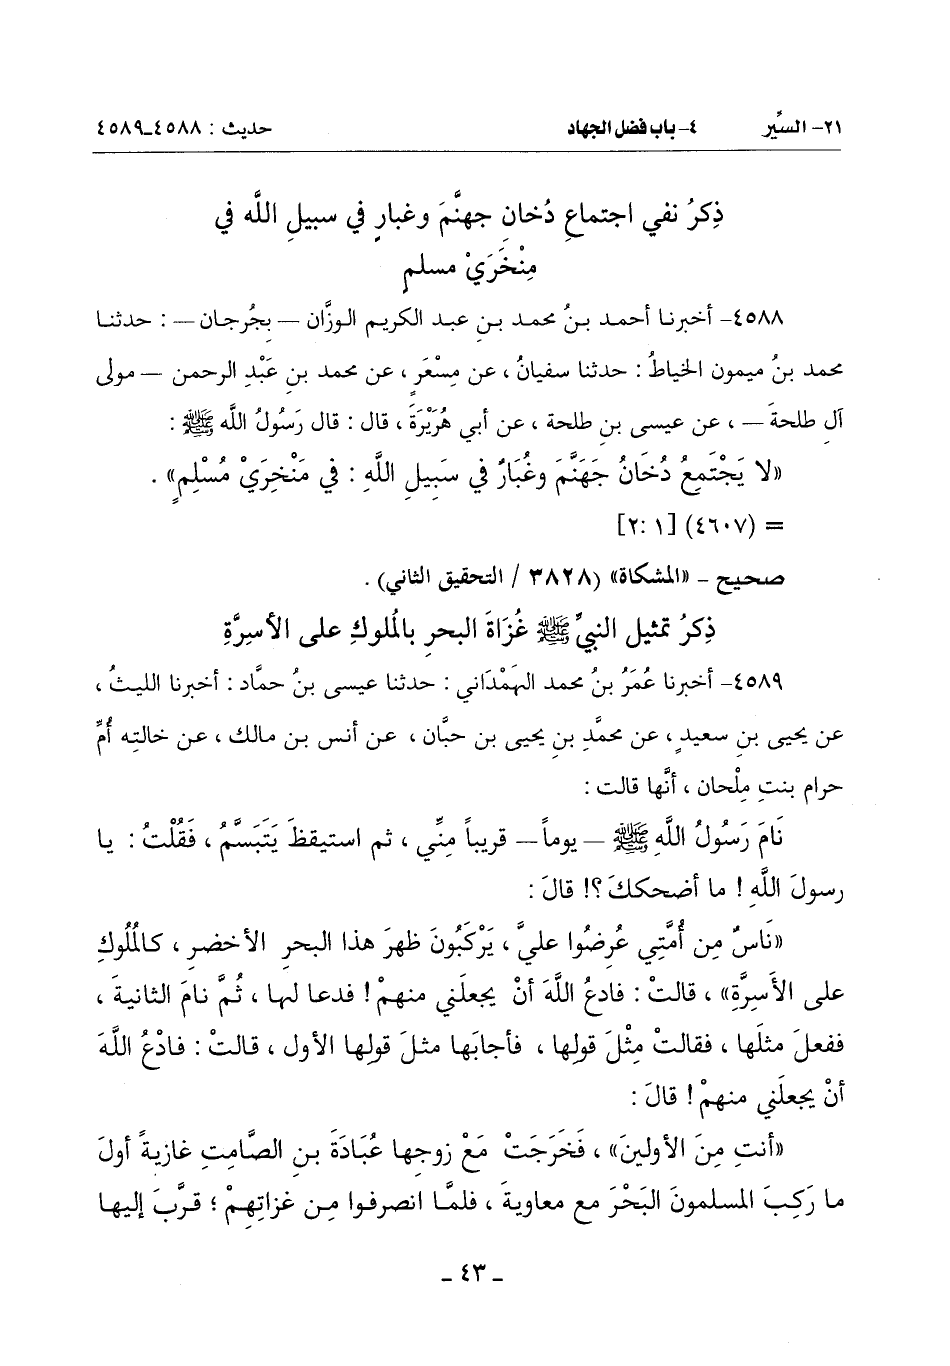 ٢١- السِّير ٤- باب فضل الجهاد حديث : ٤٥٨٨-٤٥٨٩
ذِكرُ نفي اجتماعِ دُخان جهنَّمَ وغبارٍ في سبيلِ اللَّه في
مِنْخَرَيْ مسلمٍ
٤٥٨٨- أخبرنا أحمد بنُ محمد بنِ عبد الكريم الوزَّان – بجُرجان – : حدثنا
محمد بنُ ميمون الخياطُ : حدثنا سفيانُ ، عن مِسْعَرٍ ، عن محمد بنِ عَبْدِ الرحمن – مولى
آل طلحةَ – ، عن عيسى بنِ طلحة ، عن أبي هُرَيْرَةَ ، قال : قال رَسُولُ اللَّه ﷺ :
«لا يَجْتَمِعُ دُخَانُ جَهَنَّمَ وغُبَارٌ في سَبِيلِ اللَّهِ : في مَنْخِرَيْ مُسْلِمٍ» .
= (٤٦٠٧) [١ :٢]
صحيح - «المشكاة» (٣٨٢٨ / التحقيق الثاني) .
ذِكرُ تمثيل النبيِّ ﷺ غُزَاةَ البحرِ بالمُلوكِ على الأسِرَّةِ
٤٥٨٩- أخبرنا عُمَرُ بنُ محمد الهَمْدَاني : حدثنا عيسى بنُ حمَّاد : أخبرنا الليثُ ،
عن يحيى بنِ سعيدٍ ، عن محمَّدِ بنِ يحيى بن حبَّان ، عن أنس بن مالك ، عن خالتِه أُمِّ
حرام بنتِ مِلْحان ، أنَّها قالت :
نَامَ رَسُولُ اللَّهِ ﷺ – يوماً – قريباً مِنِّي ، ثم استيقظَ يَتَبَسَّمُ ، فَقُلْتُ : يا
رسولَ اللَّهِ ! ما أضحككَ ؟! قالَ :
«نَاسٌ مِن أُمَّتِي عُرِضُوا عليَّ ، يَرْكَبُونَ ظهرَ هذا البحرِ الأخضرِ ، كالمُلُوكِ
على الأَسِرَّةِ» ، قالتْ : فادعُ اللَّهَ أنْ يجعلَني منهمْ ! فدعا لها ، ثُمَّ نامَ الثانيةَ ،
ففعلَ مثلَها ، فقالتْ مِثْلَ قولِها ، فأجابَها مثلَ قولِها الأول ، قالتْ : فادْعُ اللَّهَ
أنْ يجعلَني منهمْ ! قالَ :
«أنتِ مِنَ الأولينَ» ، فَخَرَجَتْ مَعْ زوجِها عُبَادَةَ بنِ الصَّامِتِ غازيةً أولَ
ما رَكِبَ المسلمونَ البَحْرَ مع معاويةَ ، فلمَّا انصرفوا مِن غزاتِهِمْ ؛ قرَّبَ إليها
- ٤٣ -